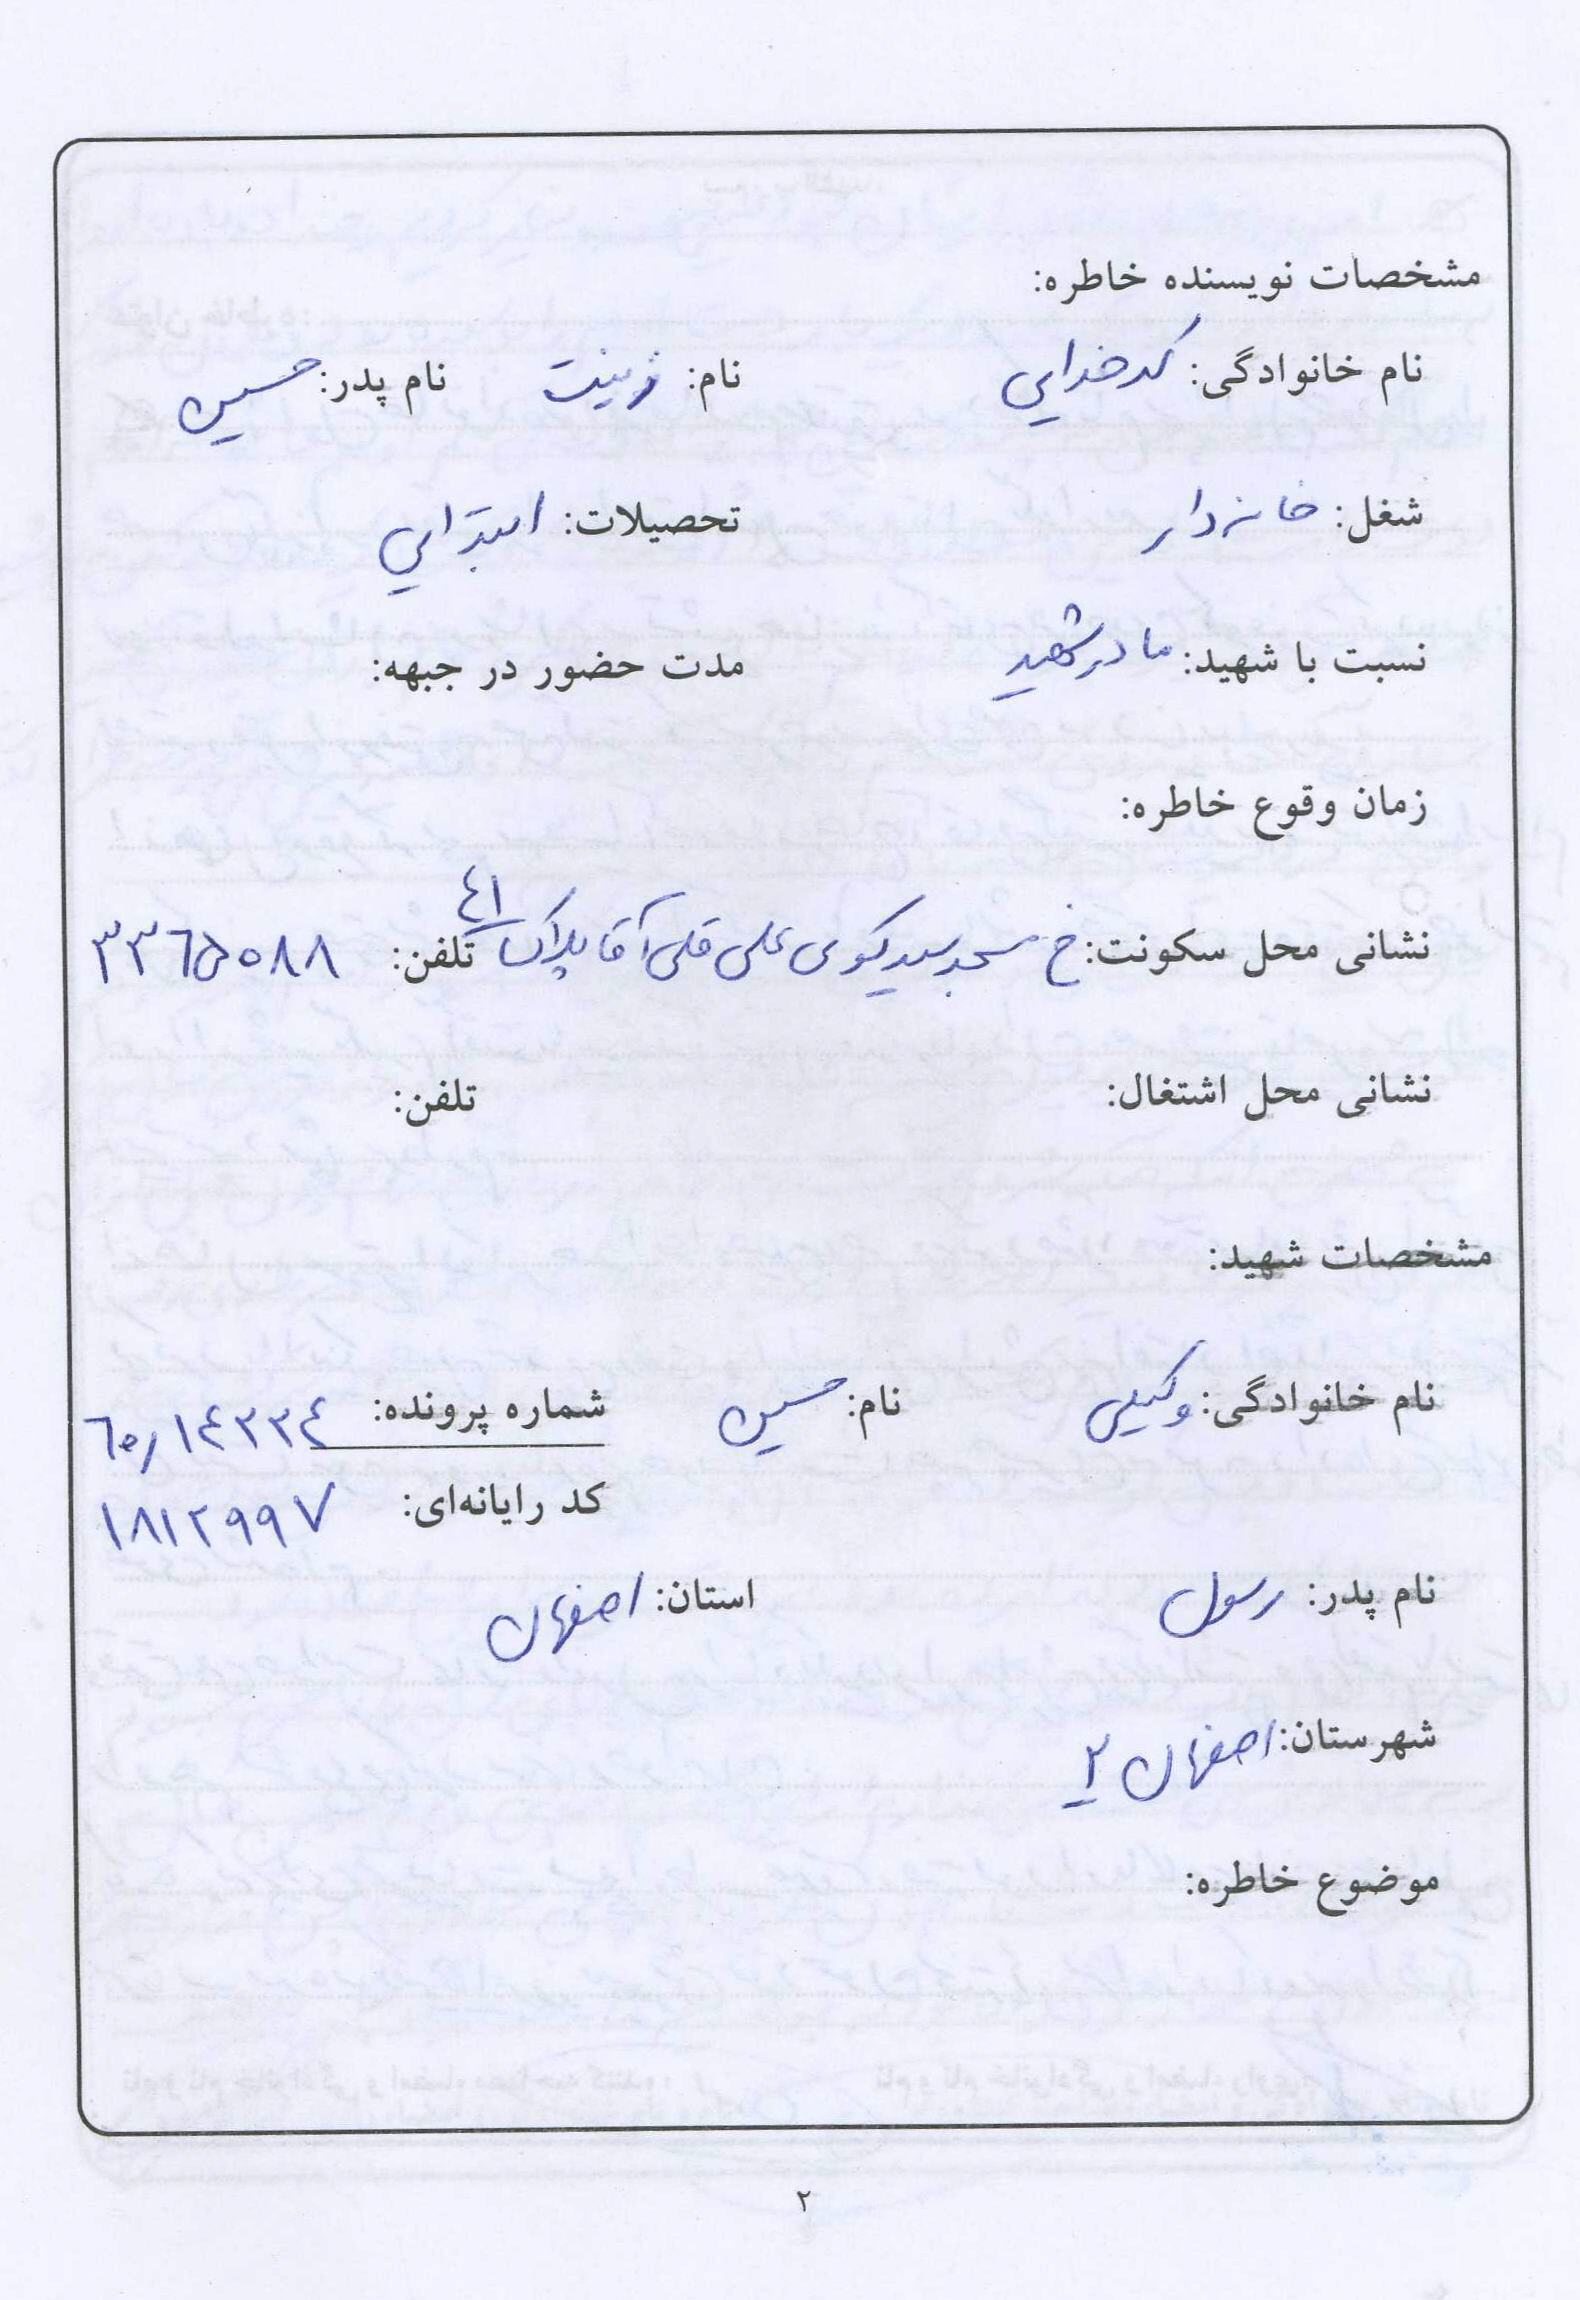 مشخصات نویسنده خاطره:
نام خانوادگی: کدخدایی نام: زینت نام پدر: حسین
شغل: خانه‌دار تحصیلات: ابتدایی
نسبت با شهید: مادر شهید مدت حضور در جبهه:
زمان وقوع خاطره:
نشانی محل سکونت: خ مسجد سید کوی علی قلی آقا پلاک ٤١ تلفن: ٣٣٦٥٠٨٨
نشانی محل اشتغال: تلفن:
مشخصات شهید:
نام خانوادگی: وکیلی نام: حسین شماره پرونده: ٦٥/١٤٣٣٤
کد رایانه‌ای: ١٨١٢٩٩٧
نام پدر: رسول استان: اصفهان
شهرستان: اصفهان ٢
موضوع خاطره:
٢